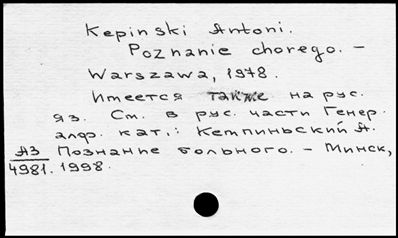 Kepinski Antoni.
Poznanie chorego. –
Warszawa, 1978.
Имеется также на рус.
яз. См. в рус. части Генер.
алф. кат.: Кемпиньский А.
А3 Познание больного. – Минск,
4981. 1998.